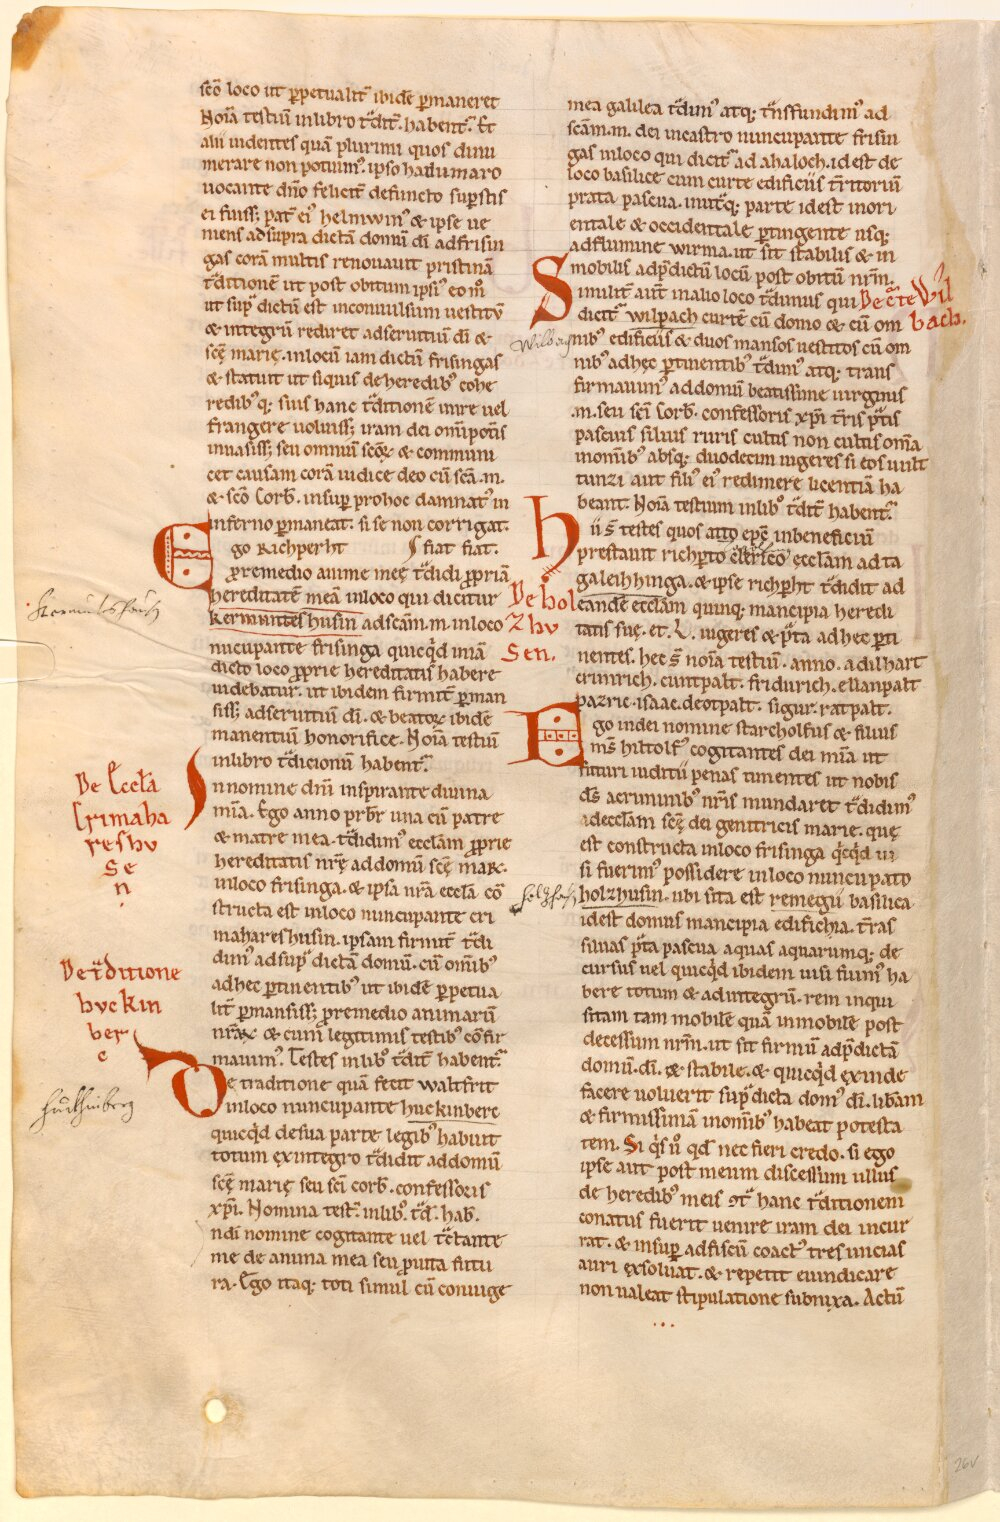 scō loco ut ꝑpetualit͛ ibidē ꝑmaneret
Noīa testiū inlibro t͛dit͛. habent͛. Et
alii uidentes quā plurimi quos dinu
merare non potuim᷒. ipso hadumaro
uocante dn̄o felicit͛ defuncto sup̱stis
ei fuiss&; pat͛ ei᷒ helmwin᷒ & ipse ue
niens adsupra dictā domū dī adfrisin
gas corā multis renouauit pristinā
t͛ditionē ut post obitum ipsi᷒ eo m̊
ut sup͛ dictū est inconuulsum uestitū
& integrū rediret adseruitiū dī &
scę̄ mariȩ. inlocū iam dictū frisingas
& statuit ut siquis deheredib᷒ cohe
redib᷒ q; suis hanc t͛ditionē inire uel
frangere uoluiss&; iram dei om̄ipotīs
inuasiss&; seu omniū scōꝝ & communi
cet causam corā iudice deo cū scā .m.
& scō Corb̄. insup̱ prohoc damnat᷒ in
inferno ꝑmaneat. si se non corrigat.
Ego Richperht fiat fiat.
ꝓremedio anime meȩ t͛didi ꝓpriā
hereditatē meā inloco qui dicitur
kermuntteshusin adscām .m. inloco
nucupante frisinga quicq̇d iniā
dicto loco ꝓprie hereditatis habere
uidebatur. ut ibidem firmit͛ ꝑman
siss&; adseruitiū dī. & beatoꝝ ibidē
manentiū honorifice. Noīa testiū
inlibro t͛dicionū habent͛.
De Eccłā
Crimaha
reshu
se
n
Innomine dn̄i inspirante diuina
mīa. Ego anno prb̄r una cū patre
& matre mea. t͛didim᷒ eccłam ꝓprie
hereditatis nrę̄ addomū scę̄ mar.
inloco frisinga. & ipsā nrā eccłā cō
structa est inloco nuncupante cri
mahareshusin. ipsam firmit͛ t͛di
dim᷒ adsup͛ dictā domū. cū om̄ib᷒
adhec ꝑtinentib᷒ ut ibidē ꝑpetua
lit͛ ꝑmansiss&; ꝓremedio animarū
nrāꝝ & cum legitimis testib᷒ cōfir
mauim᷒. Testes inlib᷒ t͛dit͛ habent͛.
De t͛ditione
huckin
ber
c
De traditione quā fecit waltfrit
inloco nuncupante huckinbere
quicq̇d desua parte legib᷒ habuit
totum exintegro t͛didit addomū
scę̄ mariȩ seu scī corb̄. confessoris
xp̄i. Nomina test͛. inlib᷒. t͛d̄. hab̄.
ndī nomine cogitante uel t͛ctante
me de anima mea seu ꝓuita futu
ra. Ego itaq; toti simul cū coniuge
mea galilea t͛dim᷒ atq; t͛nsfundim᷒ ad
scām .m. dei incastro nuncupante frisin
gas inloco qui dicit͛ ad ahaloch. id est de
loco basilice cum curte edificiis t͛ritoriū
prata pascua. inut͛q; parte idest inori
entale & occidentale ꝑtingente usq;
adflumine wirma. ut sit stabilis & in
mobilis adp̄dictū locū post obitū nrm̄.
De c͛te Wil
bach.
Similit͛ aut̄ inalio loco t͛dimus qui
dicit͛ wilpach curtē cū domo & cū om
nib᷒ edificiis & duos mansos uestitos cū om
nib᷒ adhec ꝑtinentib᷒ t͛dim᷒ atq; trans
firmauim᷒ addomū beatissime uirginis
.m. seu scī Corb̄. confessoris xp̄i t͛ris p͛tis
pascuis siluis ruris cultis non cultis om̄a
inom̄ib᷒ absq; duodecim iugeres si eos uult
tunzi aut fili᷒ ei᷒ redimere licentiā ha
beant. Noīa testium inlib᷒ t͛dit͛ habent͛.
Hii s̄ testes quos atto ep̄c inbeneficiū
prestauit richperto clerico eccłam adta
galeihhinga. & ipse richꝑht t͛didit ad
De hol
zhu
sen.
eandē eccłam quinq; mancipia heredi
tatis suȩ. et .L. iugeres & p͛ta adhec ꝑti
nentes. hec s̄ noīa testiū. anno. adilhart
crimrich. cuntpalt. fridurich. ellanpalt
pazric. isaac. deotpalt. sigur. ratpalt.
Ego indei nomine starcholfus & filius
ms̄ hiltolf᷒ cogitantes dei mīa ut
futuri iuditii penas timentes ut nobis
ds̄ aerumnib᷒ nrīs mundaret t͛didim᷒
adeccłam scę̄ dei genitricis marie. quȩ
est constructa inloco frisinga q̇cq̇d ui
si fuerim᷒ possidere inloco nuncupato
holzhusin. ubi sita est remegii basilica
idest domus mancipia edifichia. t͛ras
siluas p͛ta pascua aquas aquarumq; de
cursus uel quicq̇d ibidem uisi fuim᷒ ha
bere totum & adintegrū. rem inqui
sitam tam mobilē quā inmobilē post
decessum nrm̄. ut sit firmū adp̄dictā
domū. dī. & stabile. & quicq̇d exinde
facere uoluerit sup͛ dicta dom᷒ dī. libam
& firmissimā inom̄ib᷒ habeat potesta
tem. Si q̇s ů qd̄ nec fieri credo. si ego
ipse aut post meum discessum ullus
de heredib᷒ meis hanc t͛ditionem
conatus fuerit uenire iram dei incur
rat. & insup̱ adfiscū coact᷒ tres uncias
auri exsoluat. & repetit euindicare
non ualeat stipulatione subnixa. Actū
26v